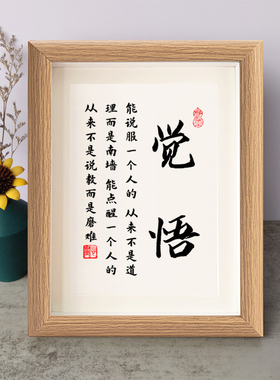 觉悟
能说服一个人的 从来不是道
理而是南墙 能点醒一个人的
从来不是说教而是磨难